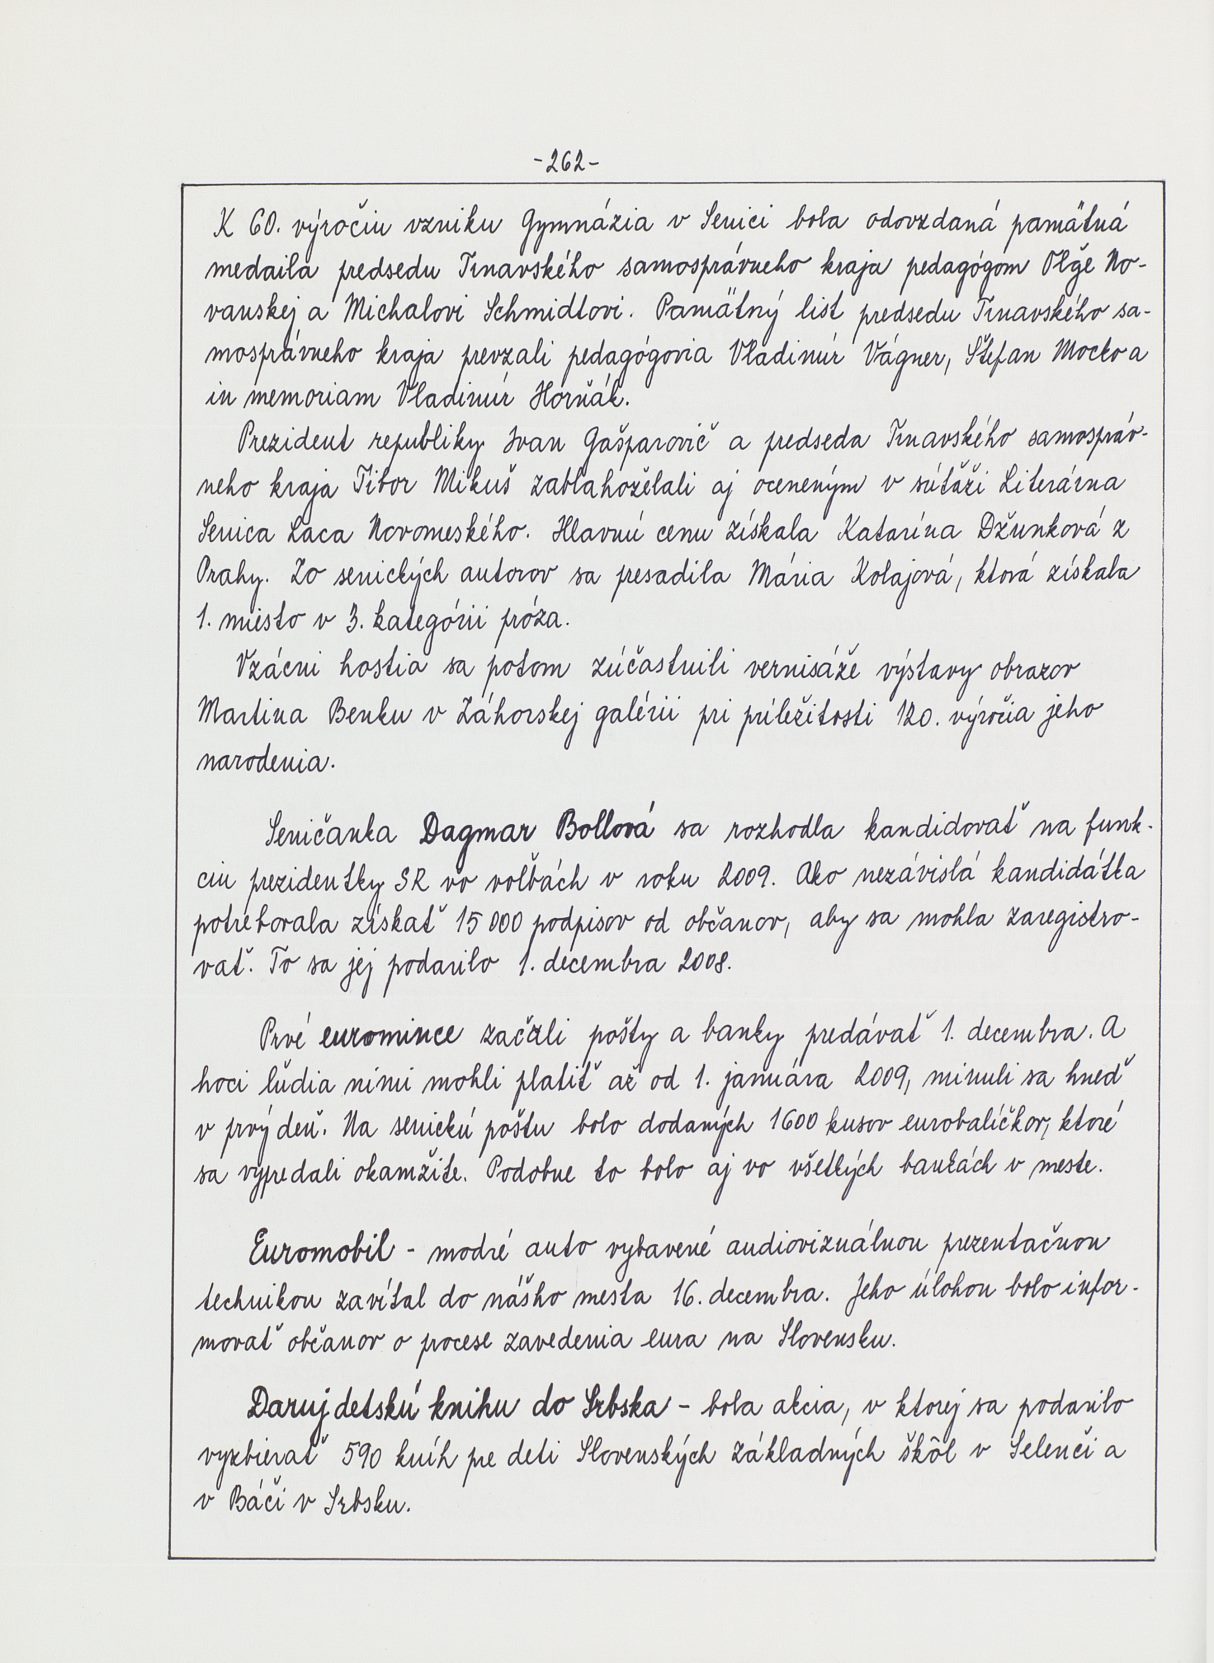 -262-
K 60. výročiu vzniku Gymnázia v Senici bola odovzdaná pamätná
medaila predsedu Trnavského samosprávneho kraja pedagógom Oľge No-
vanskej a Michalovi Schmidtovi. Pamätný list predsedu Trnavského sa-
mosprávneho kraja prevzali pedagógovia Vladimír Vágner, Štefan Mocko a
in memoriam Vladimír Horňák.
Prezident republiky Ivan Gašparovič a predseda Trnavského samospráv-
neho kraja Tibor Mikuš zablahoželali aj oceneným v súťaži Literárna
Senica Laca Novomeského. Hlavnú cenu získala Katarína Džunková z
Prahy. Zo senických autorov sa presadila Mária Kolajová, ktorá získala
1. miesto v 3. kategórii próza.
Vzácni hostia sa potom zúčastnili vernisáže výstavy obrazov
Martina Benku v Záhorskej galérii pri príležitosti 120. výročia jeho
narodenia.
Seničanka Dagmar Bollová sa rozhodla kandidovať na funk-
ciu prezidentky SR vo voľbách v roku 2009. Ako nezávislá kandidátka
potrebovala získať 15 000 podpisov od občanov, aby sa mohla zaregistro-
vať. To sa jej podarilo 1. decembra 2008.
Prvé euromince začali pošty a banky predávať 1. decembra. A
hoci ľudia nimi mohli platiť až od 1. januára 2009, minuli sa hneď
v prvý deň. Na senickú poštu bolo dodaných 1600 kusov eurobalíčkov, ktoré
sa vypredali okamžite. Podobne to bolo aj vo všetkých bankách v meste.
Euromobil - modré auto vybavené audiovizuálnou prezentačnou
technikou zavítal do nášho mesta 16. decembra. Jeho úlohou bolo infor-
movať občanov o procese zavedenia eura na Slovensku.
Daruj detskú knihu do Srbska - bola akcia, v ktorej sa podarilo
vyzbierať 590 kníh pre deti Slovenských základných škôl v Selenči a
v Báči v Srbsku.